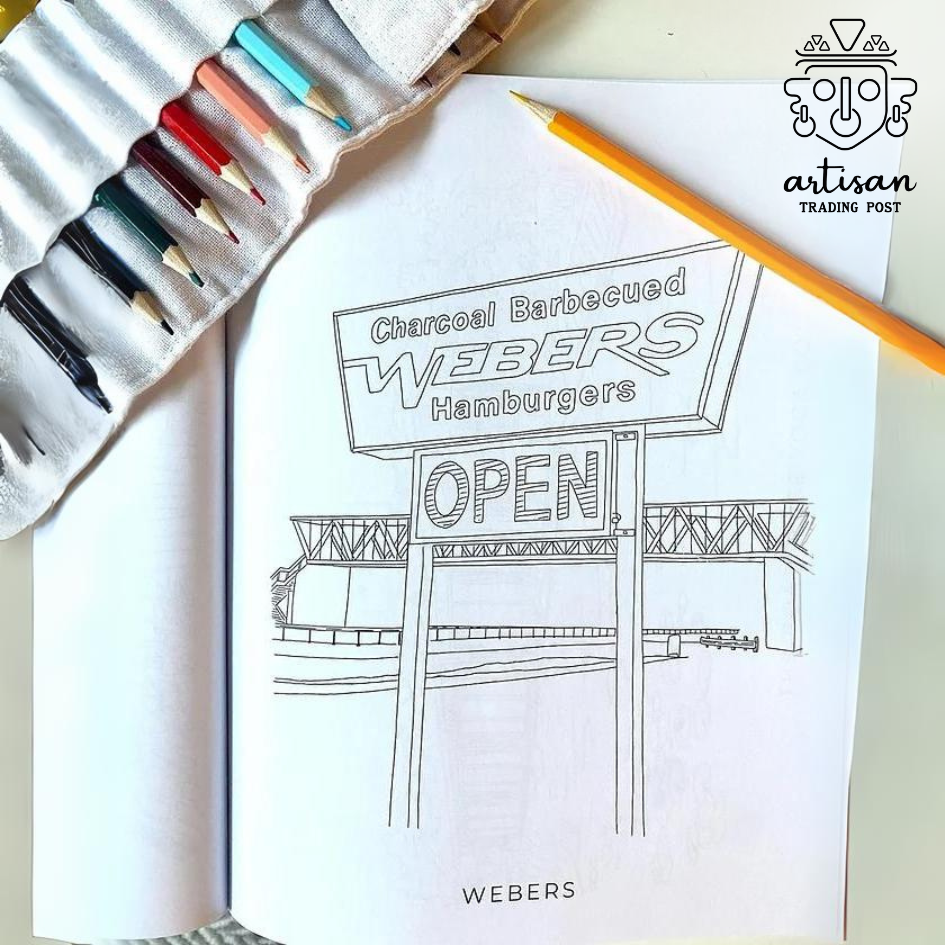 artisan
TRADING POST
Charcoal Barbecued
WEBERS
Hamburgers
OPEN
WEBERS